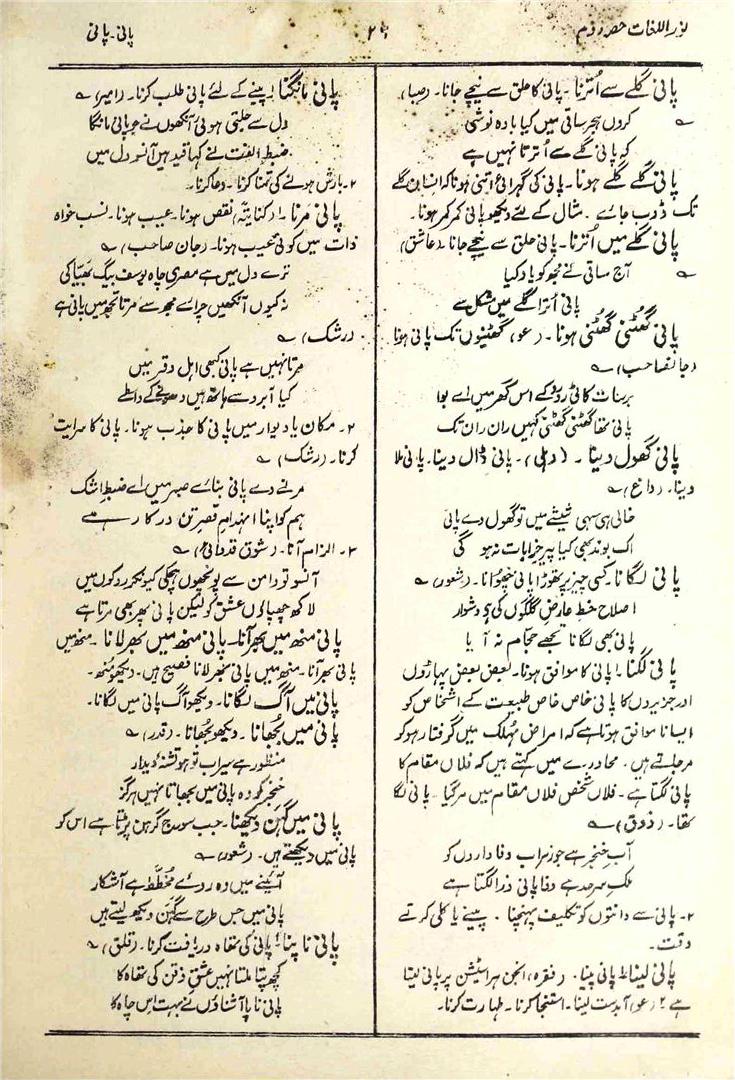 نور اللغات حصہ دوم
پانی ۔ پانی
پانی گلے سے اُترنا ۔ پانی کا حلق سے نیچے جانا ۔ (صبا)
کروں ہجر ساقی میں کیا بادہ نوشی
کہ پانی گلے سے اُترتا نہیں ہے
پانی گلے گلے ہونا ۔ پانی کی گہرائی اتنی ہونا کہ انسان گلے
تک ڈوب جائے ۔ مثال کے لئے دیکھو پانی کمر کمر ہونا ۔
پانی گلے میں اُترنا ۔ پانی حلق سے نیچے جانا ۔ (عاشق)
آج ساقی نے مجھ کو یاد کیا
پانی اُترا گلے میں مشکل سے
پانی گھُٹنی گھُٹنی ہونا ۔ (عو) گھٹنیوں تک پانی ہونا
(جانصاحب)
برسات کاٹی رو رو کے اس گھر میں اے بوا
پانی تھا گھٹنی گھٹنی کہیں ران ران تک
پانی گھول دینا ۔ (دہلی) ۔ پانی ڈال دینا ۔ پانی ملا
دینا ۔ (داغ)
خالی ہی سہی شیشے میں تو گھول دے پانی
اک بوند بھی کیا پیر خرابات نہ ہو گی
پانی لگانا ۔ کسی چیز پر تھوڑا پانی چھوانا ۔ (شعور)
اصلاح خط عارض گلگوں کی ہے دشوار
پانی بھی لگانا تجھے حجام نہ آیا
پانی لگنا ۔ ۱ پانی کا موافق ہونا ۔ بعض بعض پہاڑوں
اور جزیروں کا پانی خاص خاص طبیعت کے اشخاص کو
ایسا نا موافق ہوتا ہے کہ امراض مہلک میں گرفتار ہو کر
مر جاتے ہیں ۔ محاورے میں کہتے ہیں کہ فلاں مقام کا
پانی لگتا ہے ۔ فلاں شخص فلاں مقام میں مر گیا ۔ پانی لگا
تھا ۔ (ذوق)
آب خنجر ہے جو زہراب وفاداروں کو
ملک سرحد ہے وفا پانی ذرا لگتا ہے
۲ ۔ پانی سے دانتوں کو تکلیف پہنچنا ۔ پینے یا کلی کرتے
وقت ۔
پانی لینا ۱ پانی پینا ۔ (فقرہ) انجن ہر اسٹیشن پر پانی لیتا
ہے ۲ (عو) آبدست لینا ۔ استنجا کرنا ۔ طہارت کرنا ۔
پانی مانگنا ۱ پینے کے لئے پانی طلب کرنا ۔ (امیر)
دل سے جلتی ہوئی آنکھوں نے جو پانی مانگا
ضبط الفت نے کہا قید ہیں آنسو دل میں
۲ ۔ بارش ہونے کی تمنا کرنا ۔ دعا کرنا ۔
پانی مرنا ۔ ۱ (کنایتہً) نقص ہونا ۔ عیب ہونا ۔ نسب خواہ
ذات میں کوئی عیب ہونا ۔ (جان صاحب)
ترے دل میں ہے مصری چاہ یوسف بیگ بھیا کی
نہ کیوں آنکھیں چرائے مجھ سے مرتا تجھ میں پانی ہے
(رشک)
مرتا نہیں ہے پانی کبھی اہل وقر میں
کیا آبرو سے ہاتھ ہیں دھونے کے واسطے
۲ ۔ مکان یا دیوار میں پانی کا جذب ہونا ۔ پانی کا سرایت
کرنا ۔ (رشک)
مرنے دے پانی بنائے صبر میں اے ضبط اشک
ہم کو اپنا انہدام قصر تن درکار ہے
۳ ۔ الزام آنا ۔ (شوق قدوائی)
آنسو تو دامن سے پونچھوں ہچکی کیونکر روکوں میں
لاکھ چھپاؤں عشق کو لیکن پانی پھر بھی مرتا ہے
پانی منھ میں بھر آنا ۔ پانی منھ میں بھر لانا ۔ منھ میں
پانی بھر آنا ۔ منھ میں پانی بھر لانا فصیح ہیں ۔ دیکھو مُنھ ۔
پانی میں آگ لگانا ۔ دیکھو آگ پانی میں لگانا ۔
پانی میں بُجھانا ۔ دیکھو بُجھانا ۔ (قدر)
منظور ہے سیراب تو ہو تشنہ دیدار
خنجر کو وہ پانی میں بجھاتا نہیں ہرگز
پانی میں گہن دیکھنا ۔ جب سورج گرہن پڑتا ہے اس کو
پانی میں دیکھتے ہیں ۔ (شعور)
آئینے میں وہ روئے مُخطط ہے آشکار
پانی میں جس طرح سے گہن دیکھ لیتے ہیں
پانی ناپنا ۱ پانی کی تھاہ دریافت کرنا ۔ (قلق)
کچھ پتا ملتا نہیں عشق ذقن کی تھاہ کا
پانی ناپا آشناؤں نے بہت اس چاہ کا